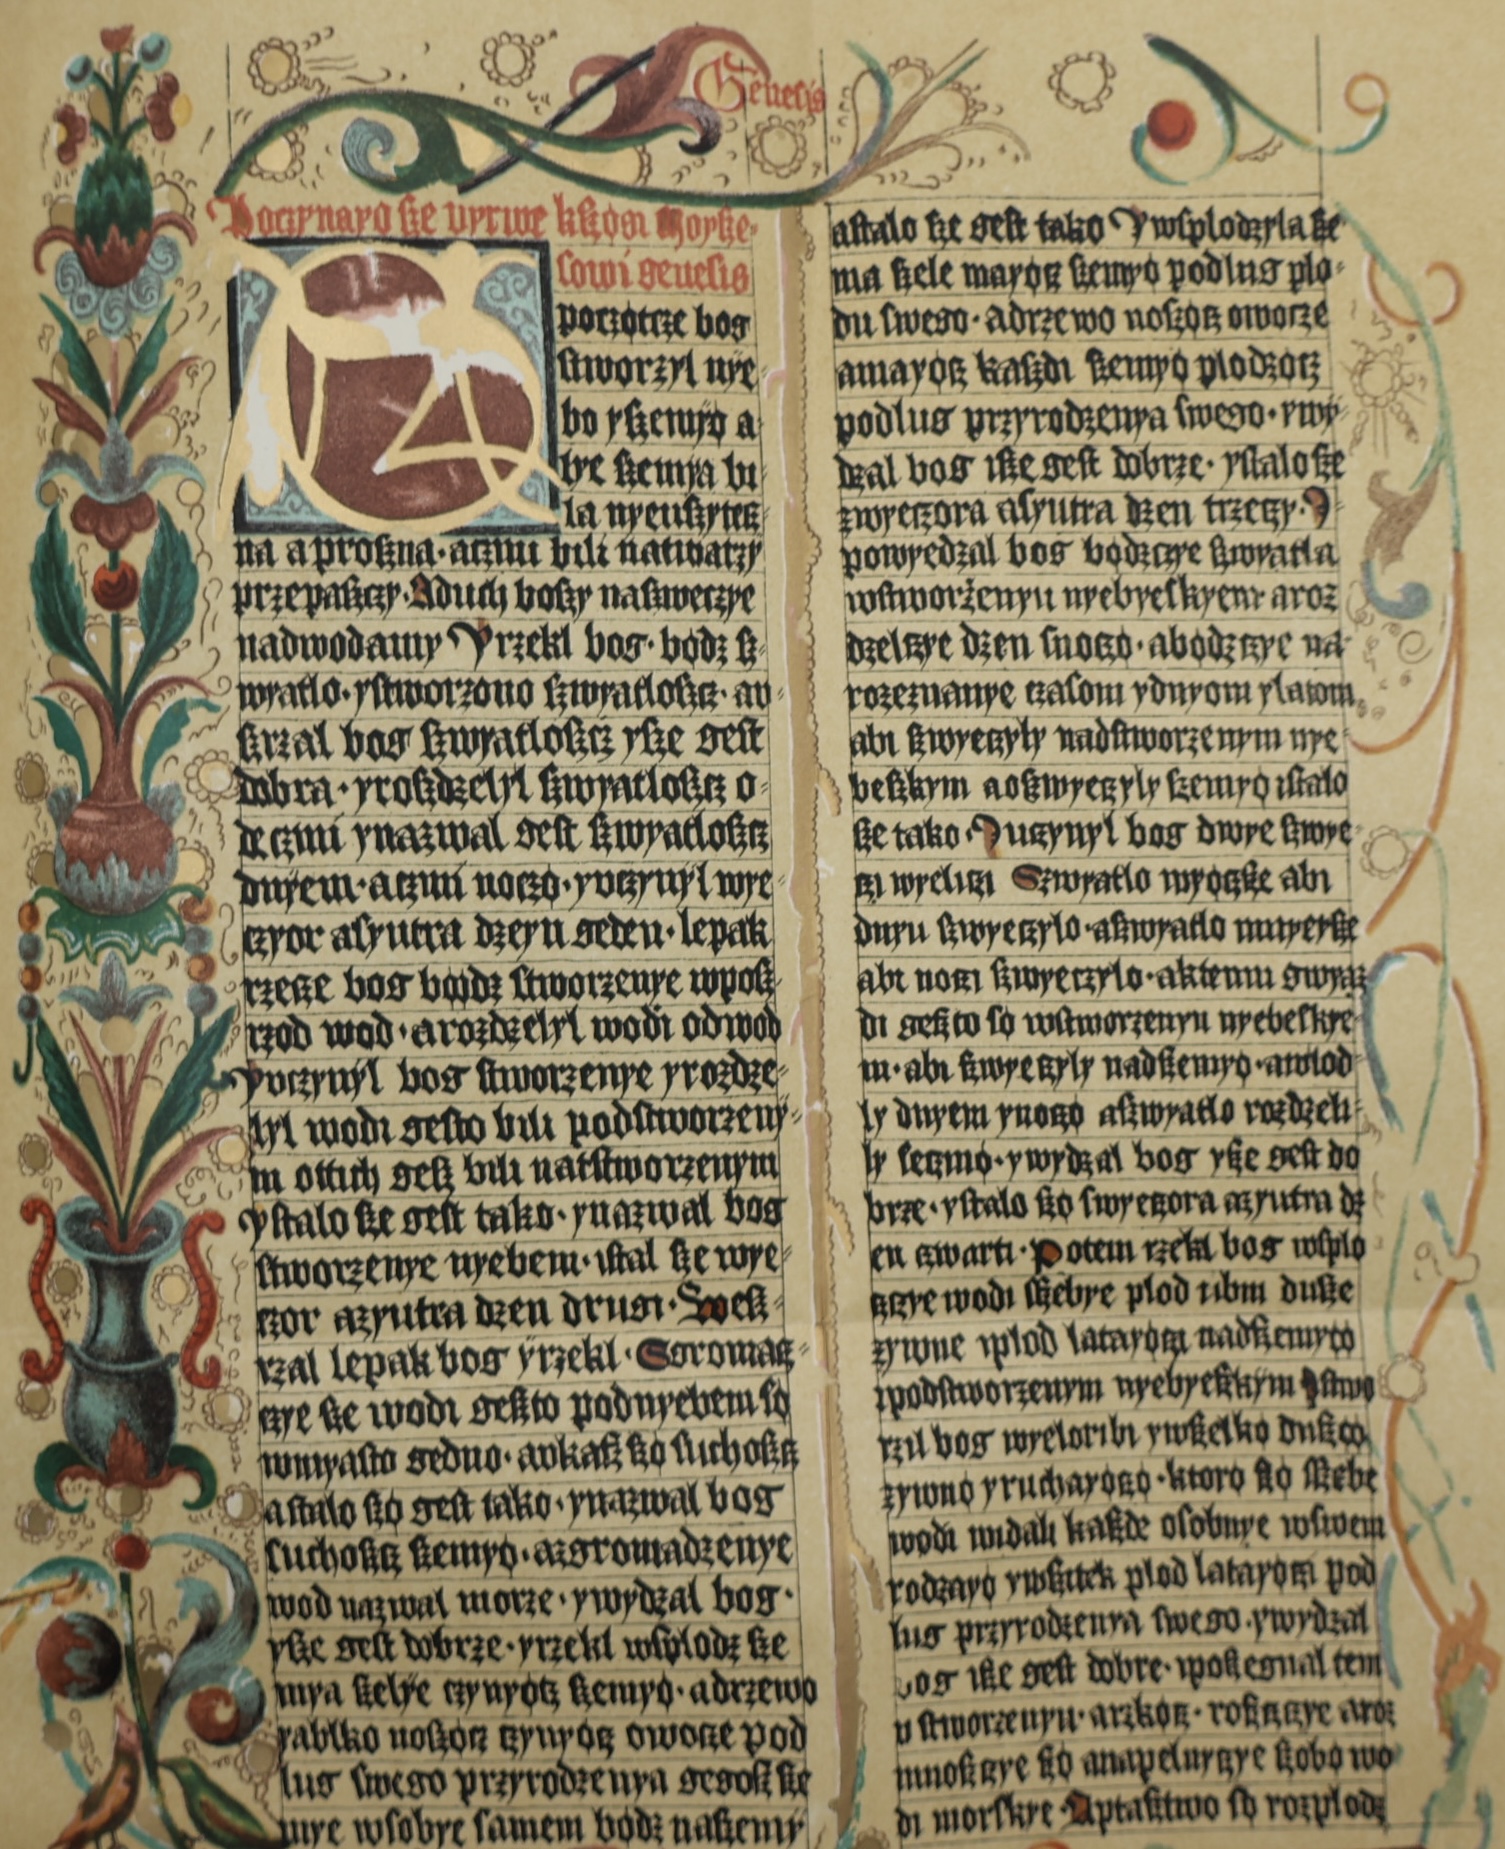 Genesis
Poczynayo sze pyrwe kszogi Moysze-
sowi genesis
Na poczotcze bog
stworzyl nye-
bo y szemyo a-
lye szemya bi-
la nyeuszytecz-
na a prozna · a czmi bili natwarzy
przepasczy · A duch bozy naszweczye
nad wodamy Y rzekl bog · bodz sz-
wyatlo · y stworzono szwyatloszcz · a u-
szrzal bog szwyatloszcz ysze gest
dobra · y rozdzelyl szwyatloszcz o-
de czmi y nazwal gest szwyatloszcz
dnyem · a czmi noczo · y uczynyl wye-
czor a s yutra dzeyn geden · lepak
rzecze bog bodz stworzenye wposz-
rzod wod · a rozdzelyl wodi od wod
Y uczynyl bog stworzenye y rozdze-
lyl wodi gesto bili pod stworzeny-
m ottich gesz bili nat stworzenym
y stalo sze gest tako · y nazwal bog
stworzenye nyebem · i stal sze wye-
czor a z yutra dzen drugi · Wesz-
rzal lepak bog y rzekl · Sgromacz-
czye sze wodi geszto pod nyebem so
wmyasto gedno · a ukasz szo suchoszcz
a stalo szo gest tako · y nazwal bog
suchoszcz szemyo · a zgromadzenye
wod nazwal morze · y wydzal bog ·
ysze gest dobrze · y rzekl wsplodz sze
mya szelye czynyocz szemyo · a drzewo
yablko noszocz czynyocz owocze pod
lug swego przyrodzenya gegosz sze
mye wsobye samem bodz na szemy
a stalo sze gest tako Y wsplodzyla sze
ma szele mayocz szemyo podlug plo-
du swego · a drzewo noszocz owocze
a mayocz kaszdi szemyo plodzocz
podlug przyrodzenya swego · y wy-
dzal bog isze gest dobrze · y stalo sze
z wyeczora a s yutra dzen trzeczy · I
powyedzal bog bodzcye szwyatla
wstworzenyu nyebyeskyem a roz
dzelczye dzen s noczo · a bodzczye na
rozeznanye czasom y dnyom y latom
abi szwyeczyly nad stworzenym nye-
beszkym a oszwyeczyly szemyo i stalo
sze tako · I uczynyl bog dwye szwye-
czi wyeliczi Szwyatlo wyoczsze abi
dnyu szwyeczylo · a szwyatlo mnyeysze
abi noczi szwyeczylo · a ktemu gwyaz
di geszto so wstworzenyu nyebeskye-
m · abi szwyeczyly nad szemyo · a wlod-
ly dnyem y noczo a szwyatlo rozdzeli-
ly se czmo · y wydzal bog ysze gest do
brze · y stalo szo s wyeczora a z yutra dz
en czwarti · Potem rzekl bog wsplo
czcye wodi szebye plod ribni dusze
zywne i plod latayoczi nad szemyo
i pod stworzenym nyebyeszkym Y stwo
rzil bog wyeloribi y wszelko duszo
zywno y ruchayoczo · ktoro szo sszebe
wodi widali kaszde osobnye wswem
rodzayo y wszitek plod latayoczi pod
lug przyrodzenya swego · y wydzal
bog isze gest dobre · i poszegnal tem
u stworzenyu · a rzkocz · roszczczye a roz
mnoszczye szo a napelnyczye szobo wo
di morskye · A ptasztwo so rozplodz